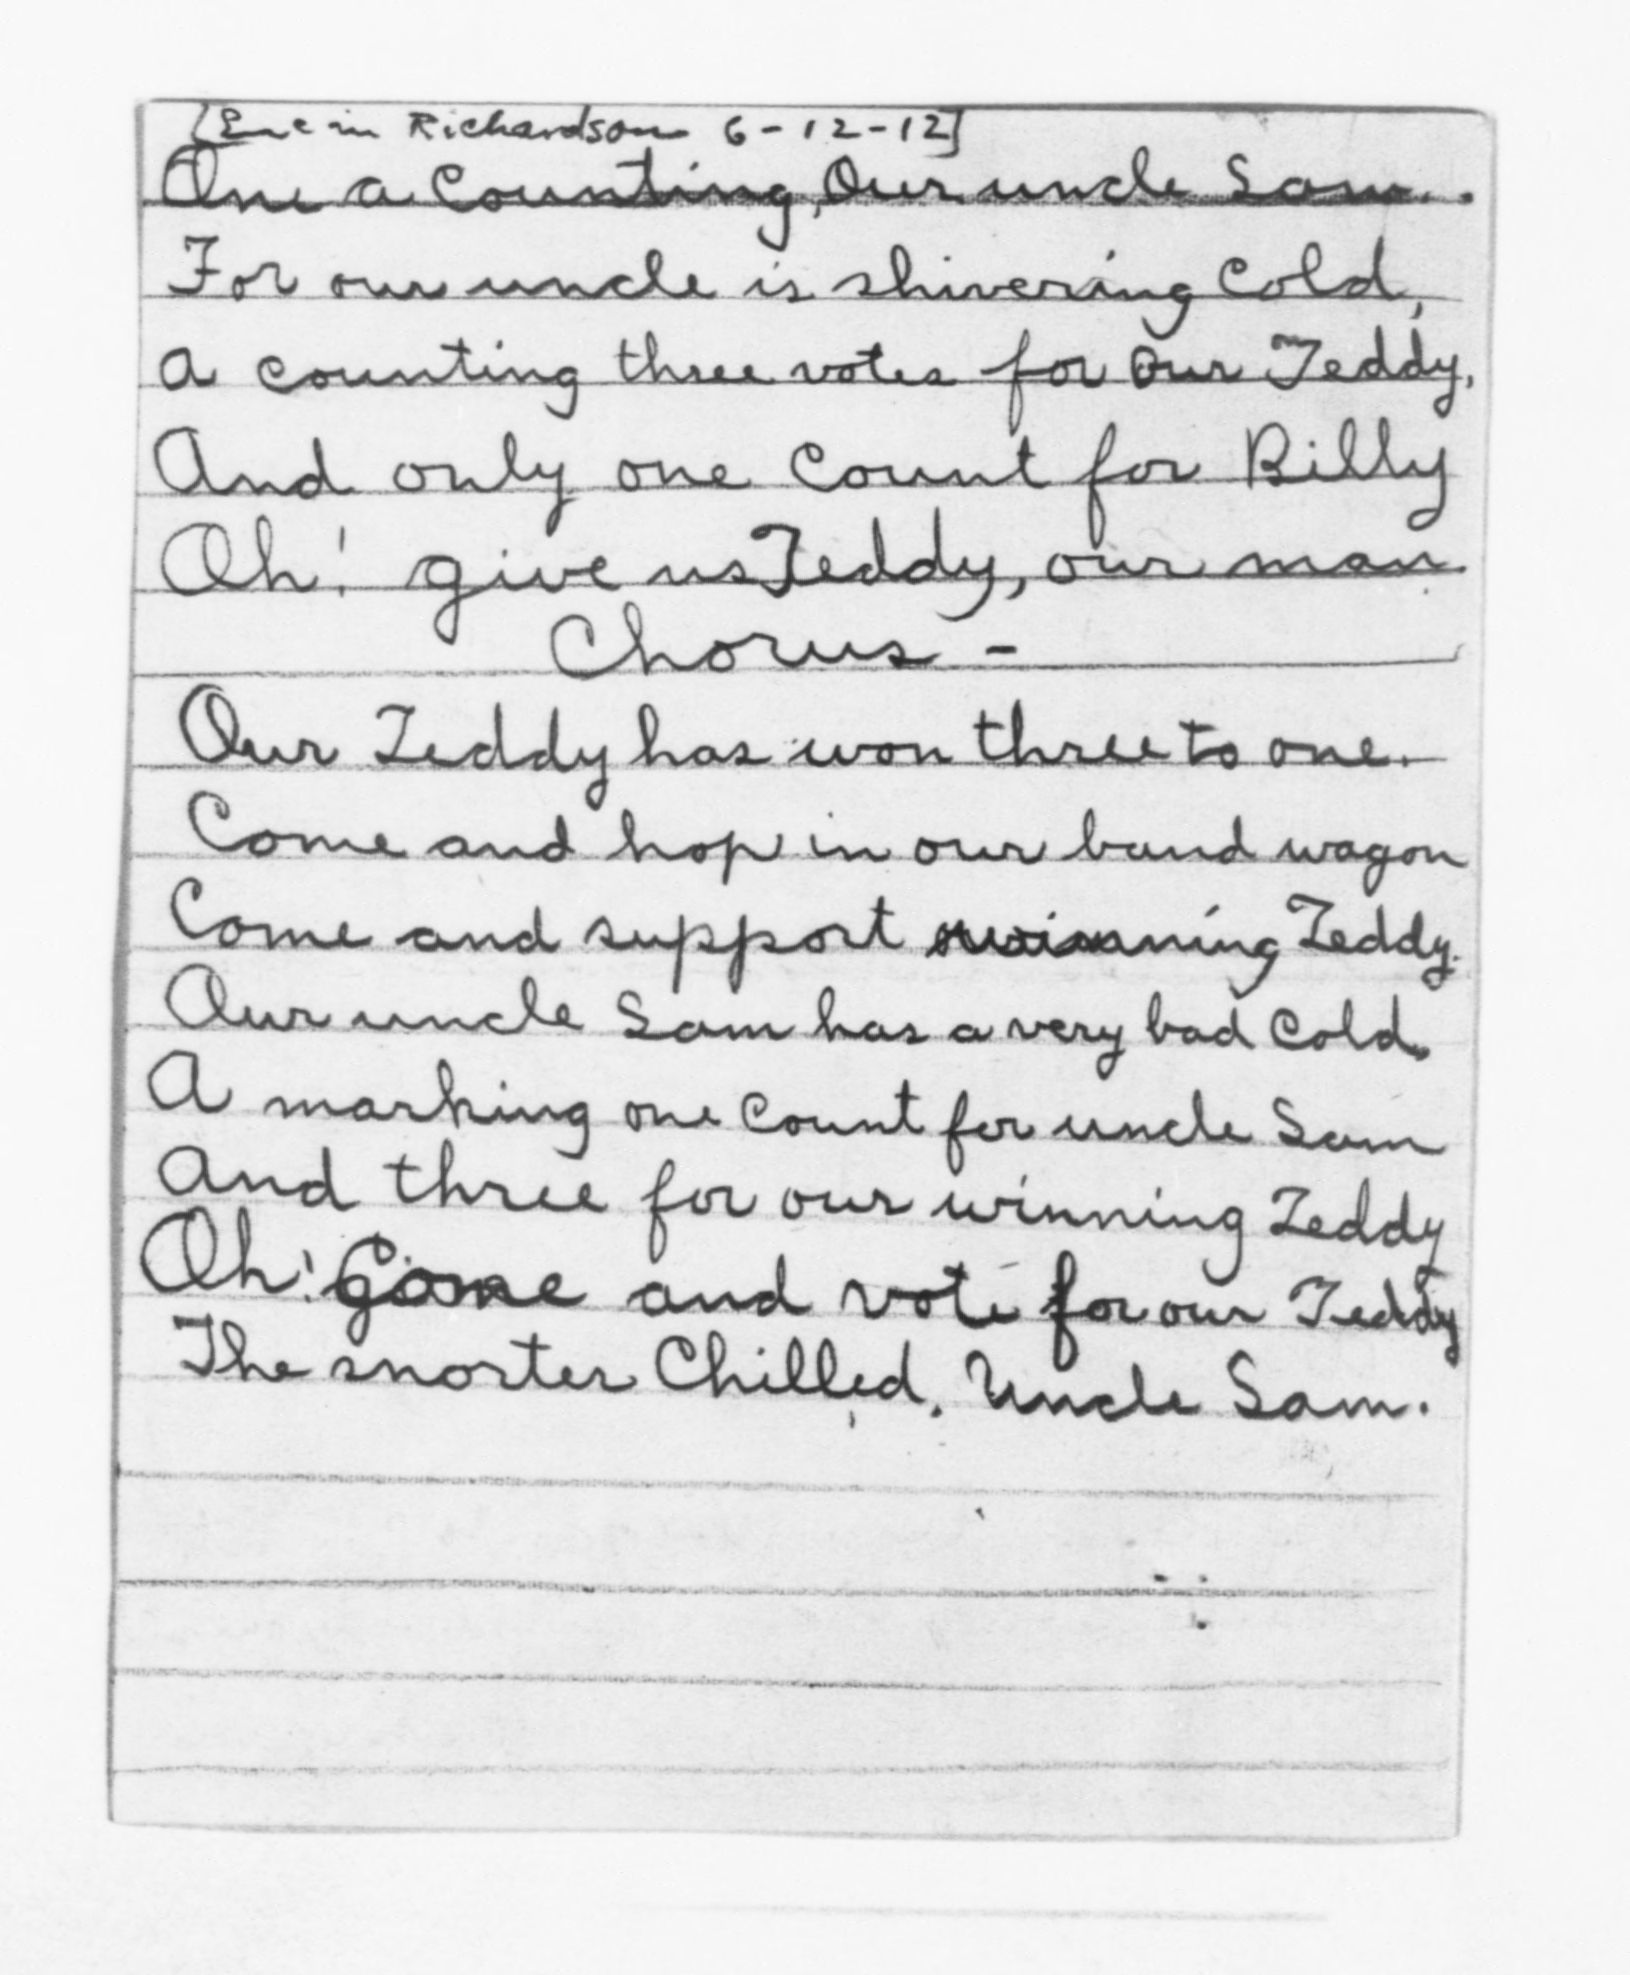 [Enc in Richardson 6-12-12]
One a Counting, Our uncle Sam.
For our uncle is shivering Cold,
A counting three votes for Our Teddy,
And only one Count for Billy
Oh! give us Teddy, our man.
Chorus -
Our Teddy has won three to one.
Come and hop in our band wagon
Come and support winning Teddy.
Our uncle Sam has a very bad Cold.
A marking one Count for uncle Sam
And three for our winning Teddy
Oh! Come and vote for our Teddy
The snorter Chilled, Uncle Sam.